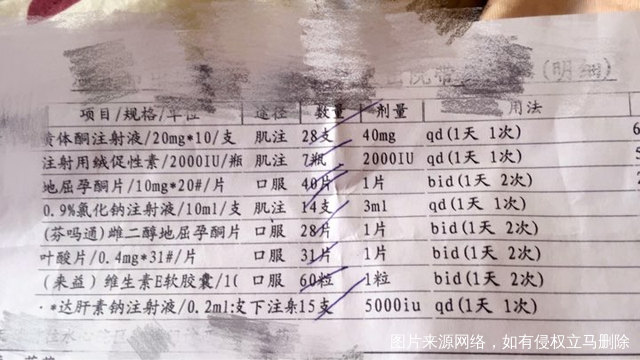 (明细)
项目/规格/单位 途径 数量 剂量 用法
黄体酮注射液/20mg*10/支 肌注 28支 40mg qd(1天 1次)
注射用绒促性素/2000IU/瓶 肌注 7瓶 2000IU qd(1天 1次)
地屈孕酮片/10mg*20#/片 口服 40片 1片 bid(1天 2次)
0.9%氯化钠注射液/10ml/支 肌注 14支 3ml qd(1天 1次)
(芬吗通)雌二醇地屈孕酮片 口服 28片 1片 bid(1天 2次)
叶酸片/0.4mg*31#/片 口服 31片 1片 bid(1天 2次)
(来益)维生素E软胶囊/1( 口服 60粒 1粒 bid(1天 2次)
*达肝素钠注射液/0.2ml:支下注身15支 5000iu qd(1天 1次)
图片来源网络，如有侵权立马删除